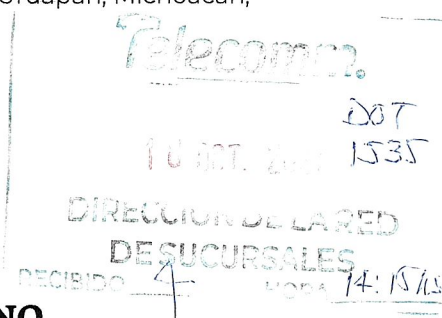 Michoacán,
Telecomm.
DOT
10 OCT. 1535
DIRECCION DE LA RED
DE SUCURSALES
RECIBIDO HORA 14:15
NO